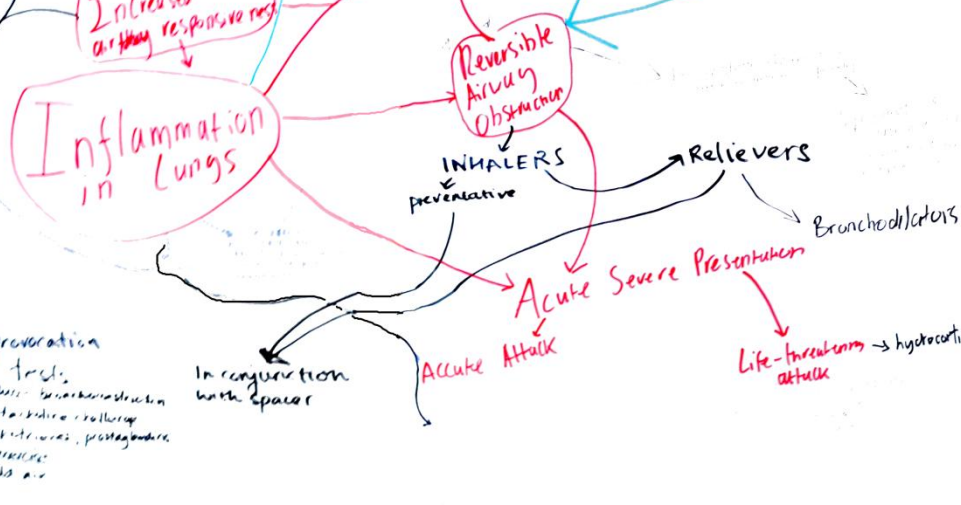 Increased
airway responsiveness
Inflammation
in Lungs
Reversible
Airway
Obstruction
INHALERS
preventative
Relievers
Bronchodilators
Acute Severe Presentation
Accute Attack
Life-threatening
attack
hydrocorti
In conjunction
with spacer
tests
prostaglandins